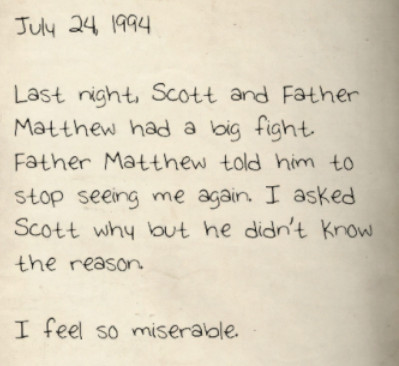 July 24, 1994
Last night, Scott and Father
Matthew had a big fight.
Father Matthew told him to
stop seeing me again. I asked
Scott why but he didn't know
the reason.
I feel so miserable.